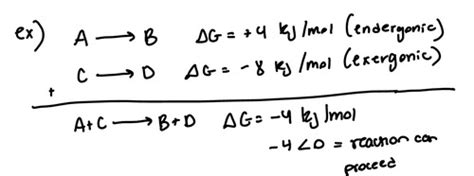 ex) A → B ΔG = +4 kJ/mol (endergonic)
+ C → D ΔG = -8 kJ/mol (exergonic)
A+C → B+D ΔG= -4 kJ/mol
-4<0 = reaction can
proceed